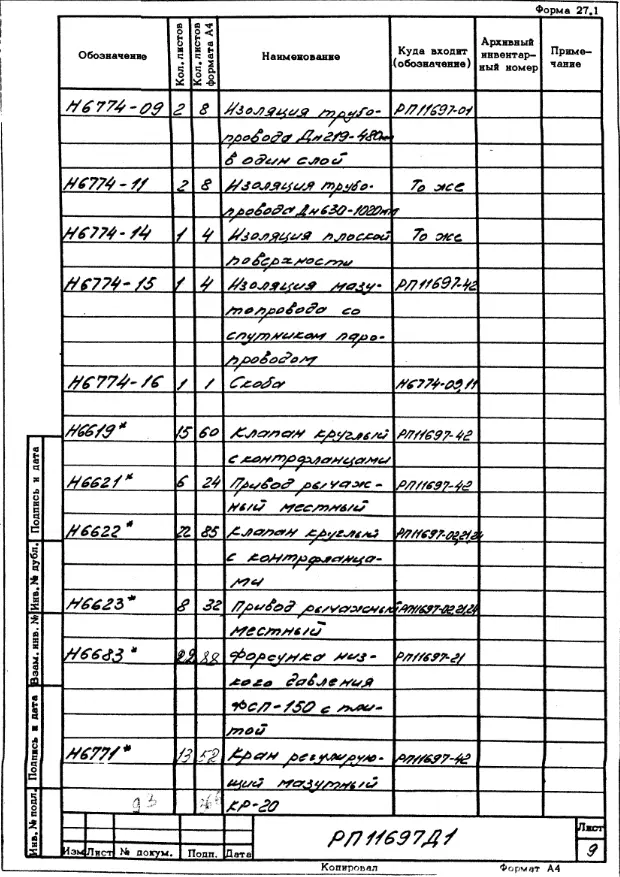 Форма 27.1
Обозначение Кол. листов Кол. листов формата А4 Наименование Куда входит (обозначение) Архивный инвентарный номер Примечание
Н6774-09 2 8 Изоляция трубо- РП11697-01
провода Дн219-480мм
в один слой
Н6774-11 2 8 Изоляция трубо- То же
провода Дн630-1020мм
Н6774-14 1 4 Изоляция плоской То же
поверхности
Н6774-15 1 4 Изоляция мазу- РП11697-42
топровода со
спутником паро-
проводом
Н6774-16 1 1 Скоба Н6774-09,11
Н6619* 15 60 Клапан круглый РП11697-42
с контрфланцами
Н6621* 6 24 Привод рычаж- РП11697-42
ный местный
Н6622* 22 85 Клапан круглый РП11697-02,21,24
с контрфланца-
ми
Н6623* 8 32 Привод рычажный РП11697-02,21,24
местный
Н6683* 22 88 Форсунка низ- РП11697-21
кого давления
ФСП-150 с пли-
той
Н6771* 13 52 Кран регулирую- РП11697-42
щий мазутный
93 КР-20
Инв. № подл. Подпись и дата Взам. инв. № Инв. № дубл. Подпись и дата
РП11697Д1
Лист
9
Изм Лист № докум. Подп. Дата
Копировал Формат А4